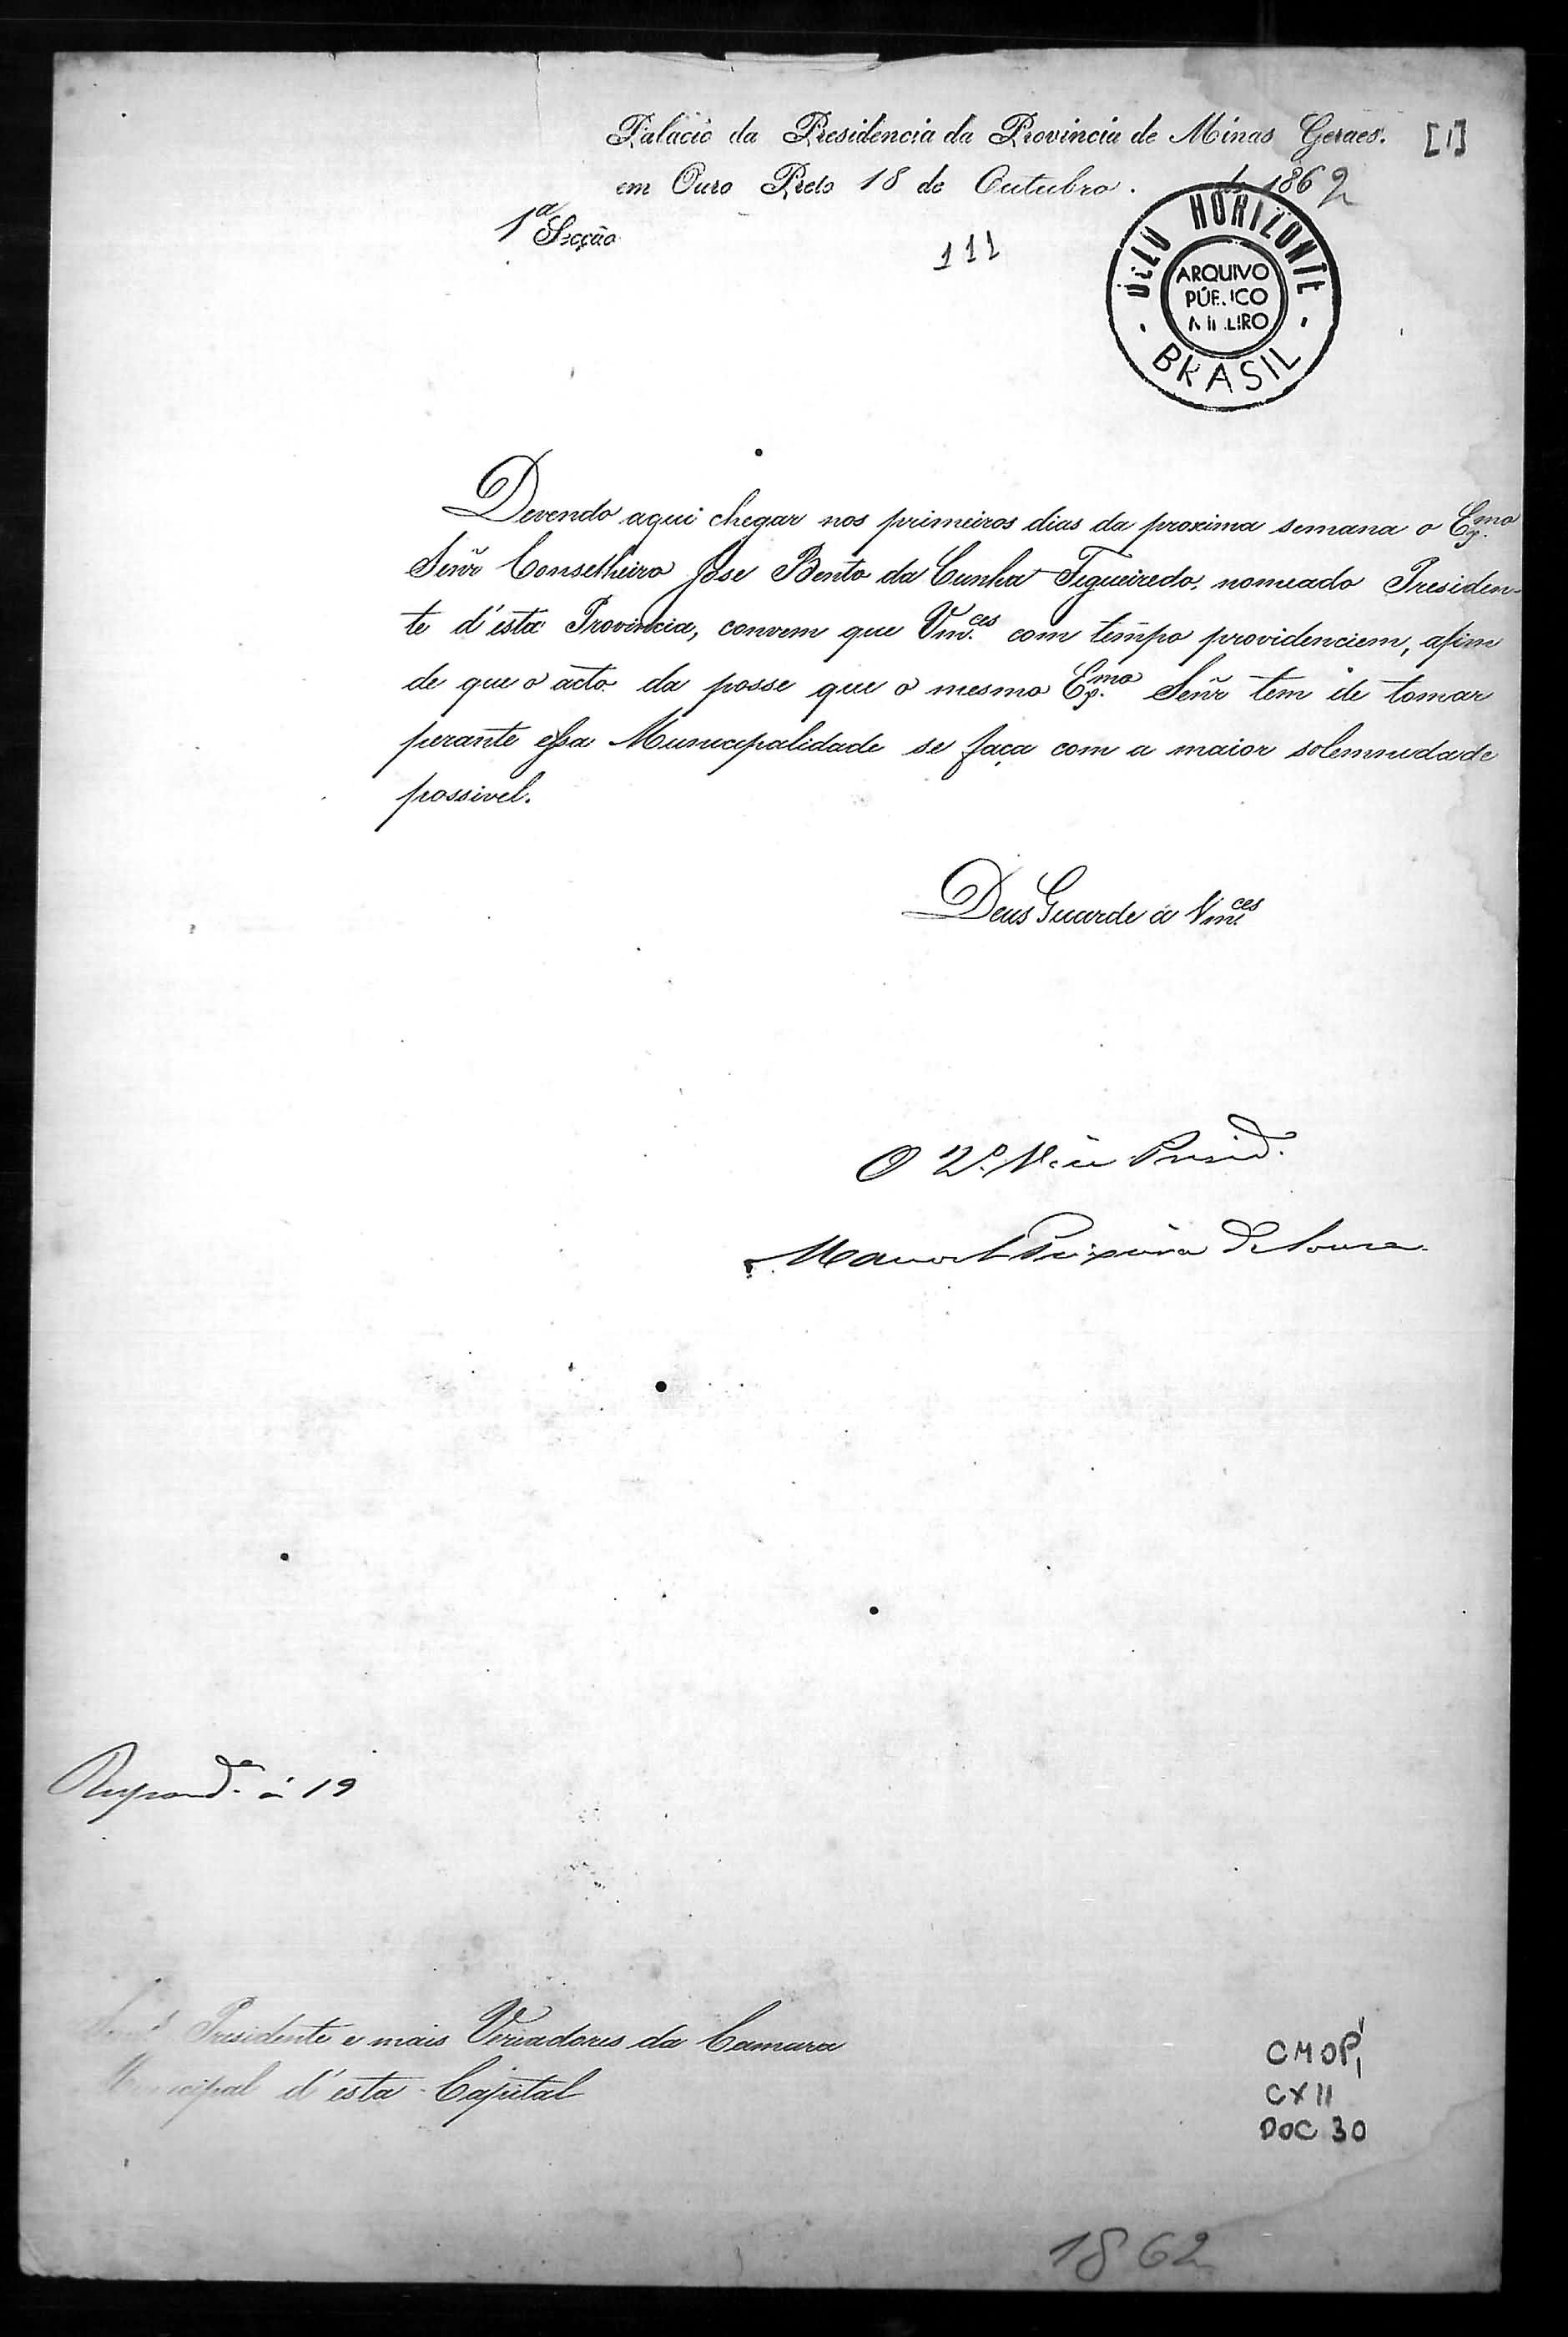 Palacio da Presidencia da Provincia de Minas Geraes.
[1]
em Ouro Preto 18 de Outubro. de 1862
1ª Secção
111
BELO HORIZONTE
ARQUIVO
PÚBLICO
MINEIRO
BRASIL
Devendo aqui chegar nos primeiros dias da proxima semana o Exmo.
Señr Conselheiro Jose Bento da Cunha Figueiredo, nomeado Presiden-
te d'esta Provincia, convem que Vm.ces com tempo providenciem, afim
de que o acto da posse que o mesmo Exmo. Señr tem de tomar
perante essa Municipalidade se faça com a maior solemnidade
possivel.
Deus Guarde a Vm.ces
O 2º Vice Presid.e
Manoel Teixeira de Souza
Respond.o á 19
Presidente e mais Vereadores da Camara
Municipal d'esta Capital
CMOP 1
CX 11
DOC 30
1862